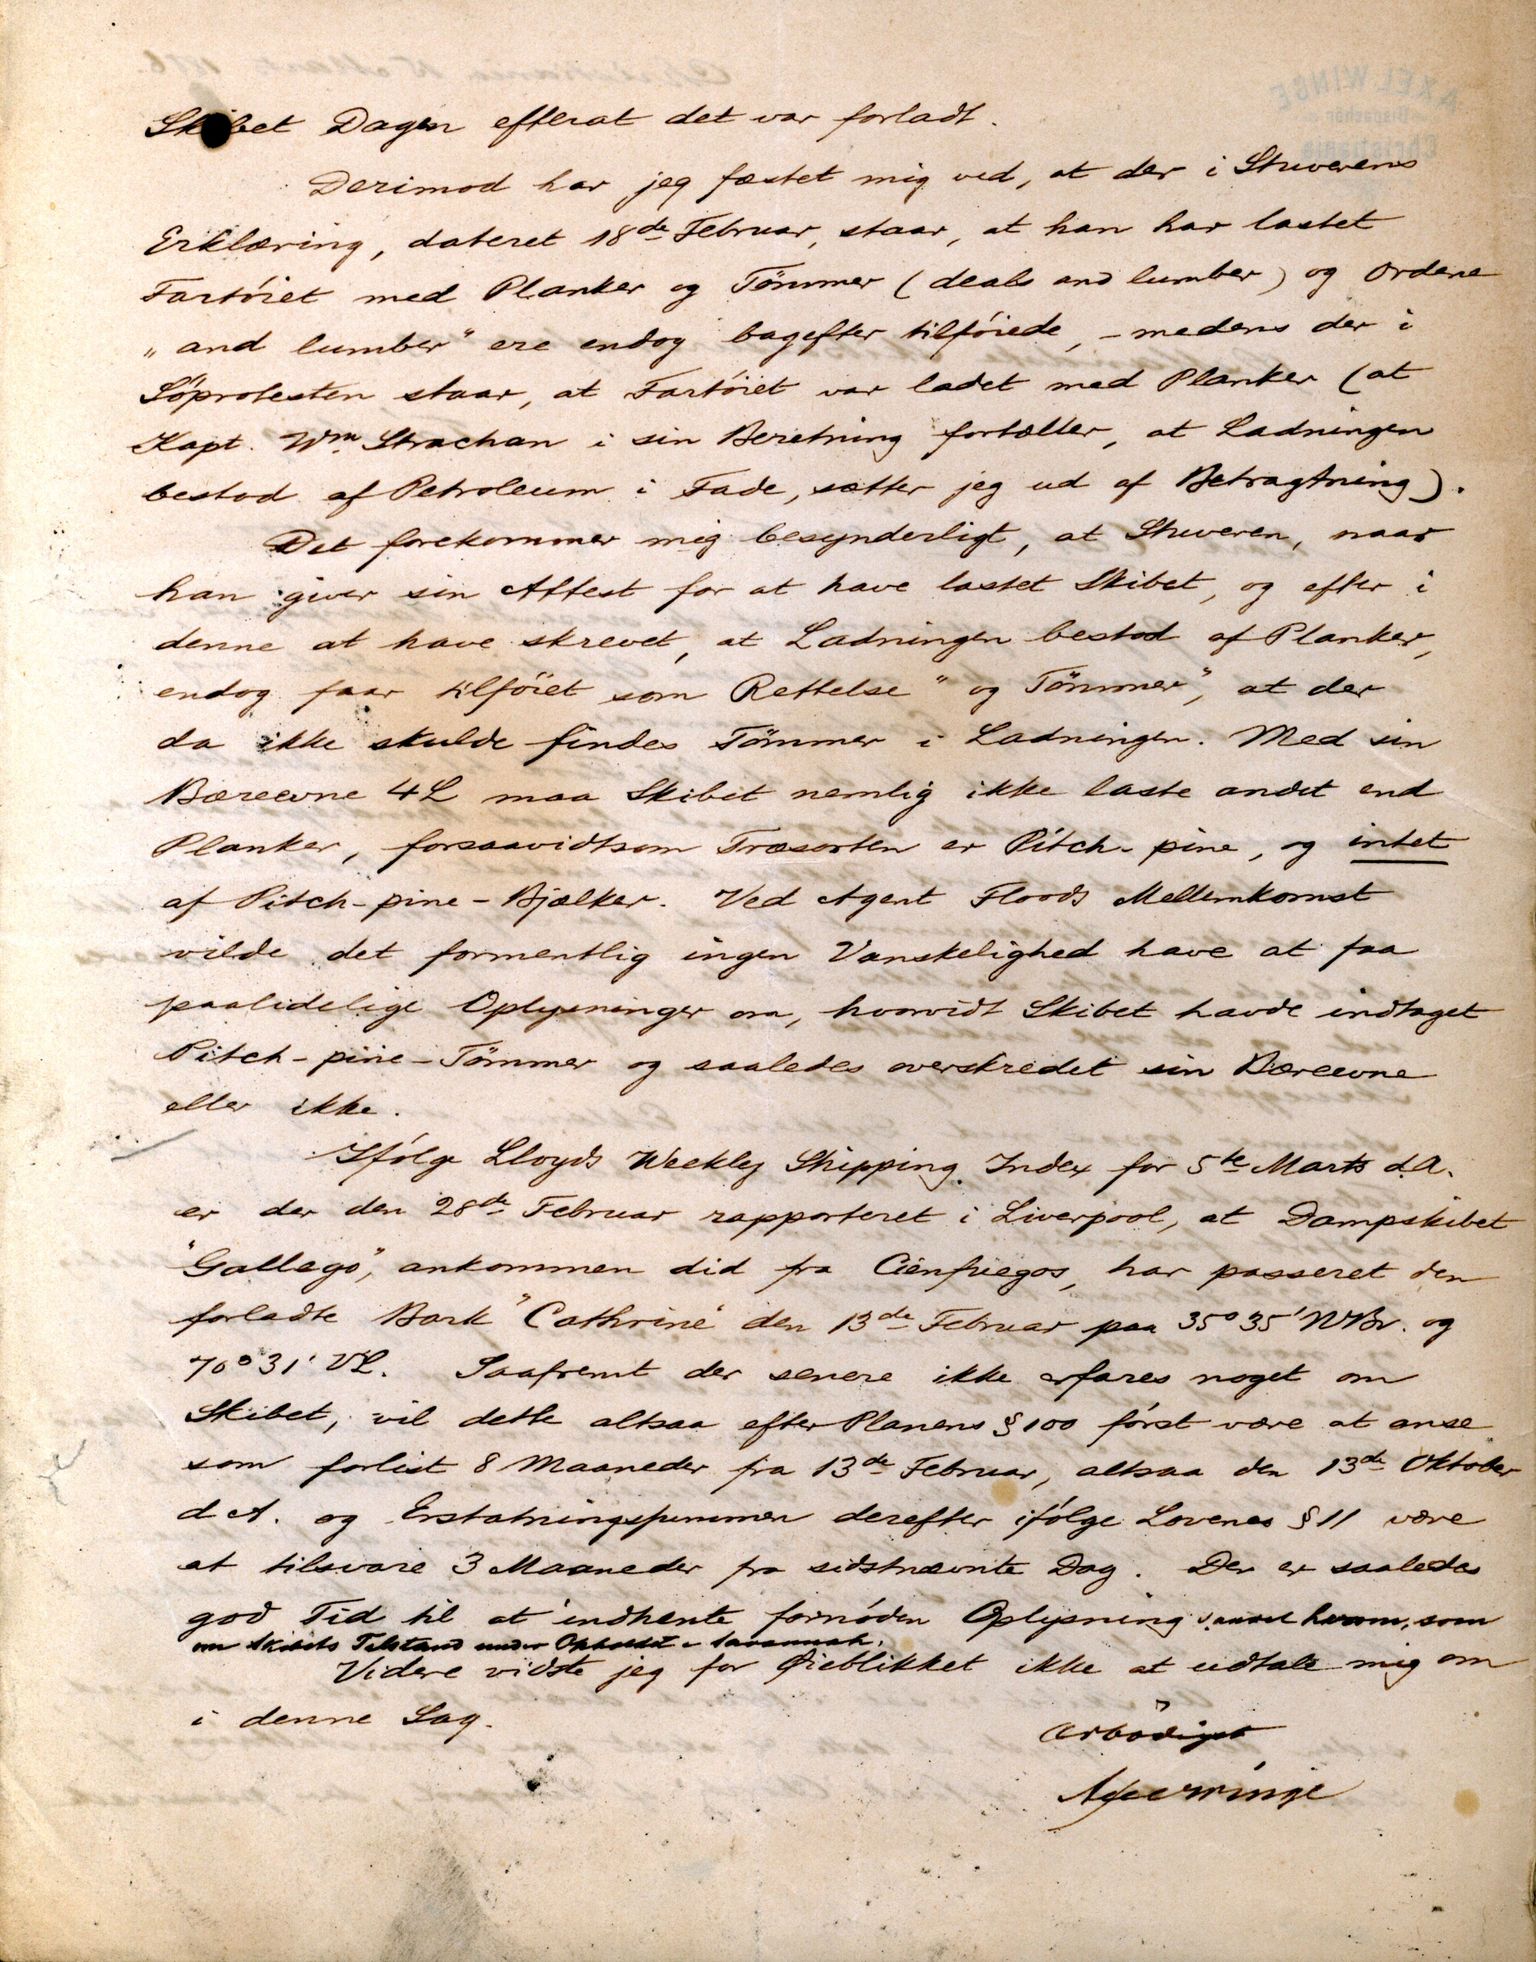 Skibet Dagen efterat det var forladt.
Derimod har jeg fæstet mig ved, at der i Stuverens
Erklæring, dateret 18de Februar, staar, at han har lastet
Fartöiet med Planker og Tömmer (deals and lumber) og Ordene
„and lumber" ere endog bagefter tilföiede, - medens der i
Söprotesten staar, at Fartöiet var ladet med Planker (at
Kapt. Wm. Strachan i sin Beretning fortæller, at Ladningen
bestod af Petroleum i Fade, sætter jeg ud af Betragtning).
Det forekommer mig besynderligt, at Stuveren, naar
han giver sin Attest for at have lastet Skibet, og efter i
denne at have skrevet, at Ladningen bestod af Planker,
endog faar tilföiet som Rettelse "og Tömmer", at der
da ikke skulde findes Tömmer i Ladningen. Med sin
Bæreevne 4L maa Skibet nemlig ikke laste andet end
Planker, forsaavidtsom Træsorten er Pitch-pine, og intet
af Pitch-pine-Bjælker. Ved Agent Floods Mellemkomst
vilde det formentlig ingen Vanskelighed have at faa
paalidelige Oplysninger om, hvorvidt Skibet havde indtaget
Pitch-pine-Tömmer og saaledes overskredet sin Bæreevne
eller ikke.
Ifölge Lloyds Weekley Shipping Index for 5te Marts d.A.
er der den 28de Februar rapporteret i Liverpool, at Dampskibet
"Gallego", ankommen did fra Cienfuegos, har passeret den
forladte Bark "Cathrine" den 13de Februar paa 35°35' NBr. og
70°31' VL. Saafremt der senere ikke erfares noget om
Skibet, vil dette altsaa efter Planens § 100 först være at anse
som forlist 8 Maaneder fra 13de Februar, altsaa den 13de Oktober
d A. og Erstatningssummen derefter ifölge Lovenes § 11 være
at tilsvare 3 Maaneder fra sidstnævnte Dag. Der er saaledes
god Tid til at indhente fornöden Oplysning saavel herom, som
om Skibets Tilstand under Opholdet i Savannah.
Videre vidste jeg for Öieblikket ikke at udtale mig om
i denne Sag.
Ærbödigst
Axel Winge
AXEL WINGE
Dispachör
Christiania